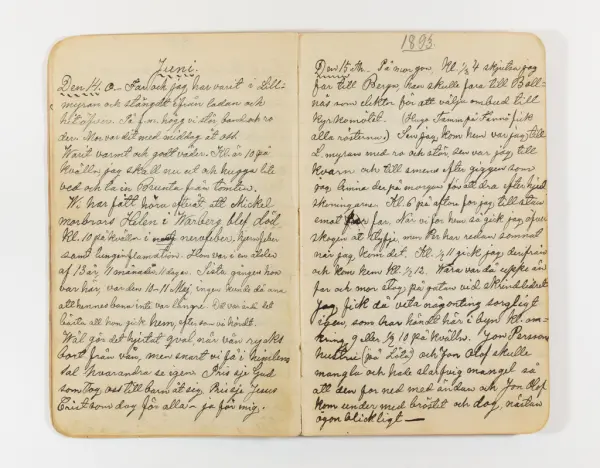 Juni.
Den 14. o. Far och jag har varit i Lill-
myran och stängdt efvan ladan och
hit åt. På f.m. högg vi stör, band och ro
der. Mor var dit med middag åt oss.
Warit varmt och godt väder. Kl. är 10 på
kvälln, jag skall nu ut och hugga lite
ved och ta in från
Wi har fått höra efteråt att Mickel
morbrors Helen i Warberg blef död
Kl. 10 på kvälln i nervfeber,
samt lunginflamation. Hon var i en ålder
af 13 år, månader, dagar. Sista gången hon
var här, var den 10-11 Maj, ingen kunde då ana
att hennes bana inte var längre. Det var ändå det
bästa att hon gick hem, efter som vi hördt.
Wäl gör det hjertat qval, när vän ryckes
bort från vän, men snart vi få i himmelens
sal hvarandra se igen. Pris sje Gud
som tog oss till barn åt sig. Pris sje Jesus
Crist som dog för alla – ja för mig.
1893.
Den 15 ath. På morgon, Kl. ½ 4 skjutsa jag
far till Berga, han skulle fara till Boll-
näs som elektor för att välja ombud till
Kyrkomötet. (
alla rösterna.) Sen jag kom hem var jag till
L. myran med ro och stör, sen var jag till
kvarn och till smens efter giggen som
jag Anna der på morgon för att dra efter hjul
skoningarna. Kl. 6 på afton for jag till sta'n
emot far. När vi for hem så gick jag öfver
skogen åt Flyfje, men Per har redan somnat
när jag kom dit. Kl. ½ 11 gick jag derifrån
och kom hem kl. ½ 12. Wara var då uppe än
far och mor slog på gatan vid
jag fick då veta någonting sorgligt
igen, som har händt här i byn kl. om-
kring 9 eller ½ 10 på kvälln. Jon Persson
(på Lötz) och Jon Olof skulle
mangla och hade slahfvig mangel så
att den for ned med ändan och Jon Olof
kom under med bröstet och dog, nästan
ögonblickligt —